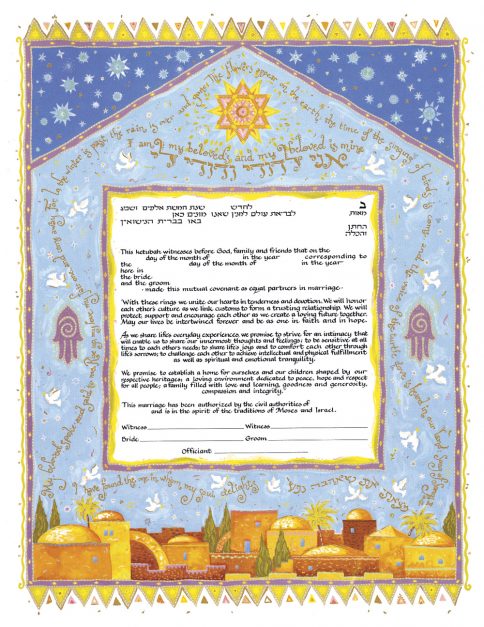 the winter is past, the rain is over and gone. The flowers appear on the earth, the time of the singing of birds is come, and
I am my beloved's and my beloved is mine
אני לדודי ודודי לי
ב לחדש שנת חמשת אלפים ושבע
מאות לבריאת עולם למנין שאנו מונים כאן
באו בברית הנישואין
החתן
והכלה
This ketubah witnesses before God, family and friends that on the
day of the month of in the year corresponding to
the day of the month of in the year
here in
the bride
and the groom
· made this mutual covenant as equal partners in marriage ·
"With these rings we unite our hearts in tenderness and devotion. We will honor
each other's culture as we link customs to form a trusting relationship. We will
protect support and encourage each other as we create a loving future together.
May our lives be intertwined forever and be as one in faith and in hope.
As we share life's everyday experiences, we promise to strive for an intimacy that
will enable us to share our innermost thoughts and feelings; to be sensitive at all
times to each other's needs; to share life's joys and to comfort each other through
life's sorrows; to challenge each other to achieve intellectual and physical fulfillment
as well as spiritual and emotional tranquility.
We promise to establish a home for ourselves and our children shaped by our
respective heritages; a loving environment dedicated to peace, hope and respect
for all people; a family filled with love and learning, goodness and generosity,
compassion and integrity."
This marriage has been authorized by the civil authorities of
and is in the spirit of the traditions of Moses and Israel.
Witness Witness
Bride Groom
Officiant
My beloved spoke and said
I have found the one in whom my soul delights
מצאתי את שאהבה נפשי